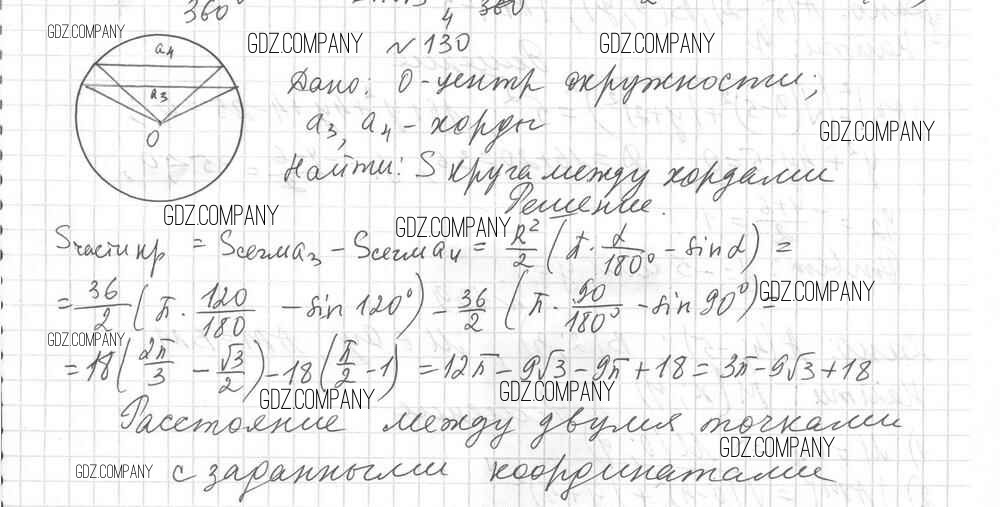 360°
4 360
GDZ.COMPANY
GDZ.COMPANY № 130 GDZ.COMPANY
a₄
a₃
O
Дано: O - центр окружности;
a₃, a₄ - хорды
GDZ.COMPANY
Найти: S круга между хордами
Решение.
GDZ.COMPANY
GDZ.COMPANY
Sчасти кр = Sсегм a₃ - Sсегм a₄ = R²/2 (π · α/180° - sin α) =
= 36/2 (π · 120/180 - sin 120°) - 36/2 (π · 90/180° - sin 90°) =
GDZ.COMPANY
GDZ.COMPANY
= 18 (2π/3 - √3/2) - 18 (π/2 - 1) = 12π - 9√3 - 9π + 18 = 3π - 9√3 + 18.
GDZ.COMPANY
GDZ.COMPANY
Расстояние между двумя точками
GDZ.COMPANY
GDZ.COMPANY с заданными координатами